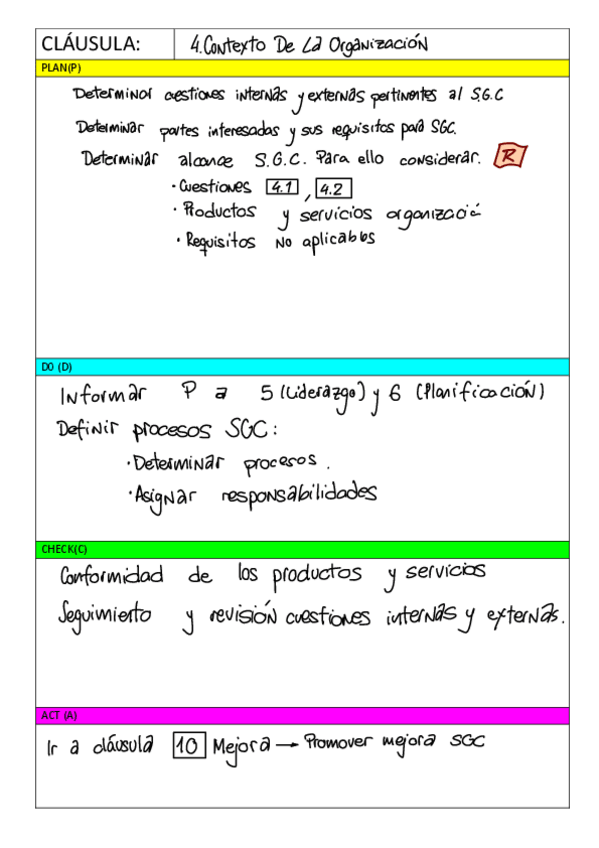 CLÁUSULA: 4. Contexto De La Organización
PLAN(P)
Determinar cuestiones internas y externas pertinentes al S.G.C
Determinar partes interesadas y sus requisitos para SGC.
Determinar alcance S.G.C. Para ello considerar. R
· Cuestiones 4.1 , 4.2
· Productos y servicios organizació
· Requisitos No aplicables
DO (D)
Informar P a 5 (Liderazgo) y 6 (Planificación)
Definir procesos SGC:
· Determinar procesos.
· Asignar responsabilidades
CHECK(C)
Conformidad de los productos y servicios
Seguimiento y revisión cuestiones internas y externas.
ACT (A)
Ir a cláusula 10 Mejora → Promover mejora SGC